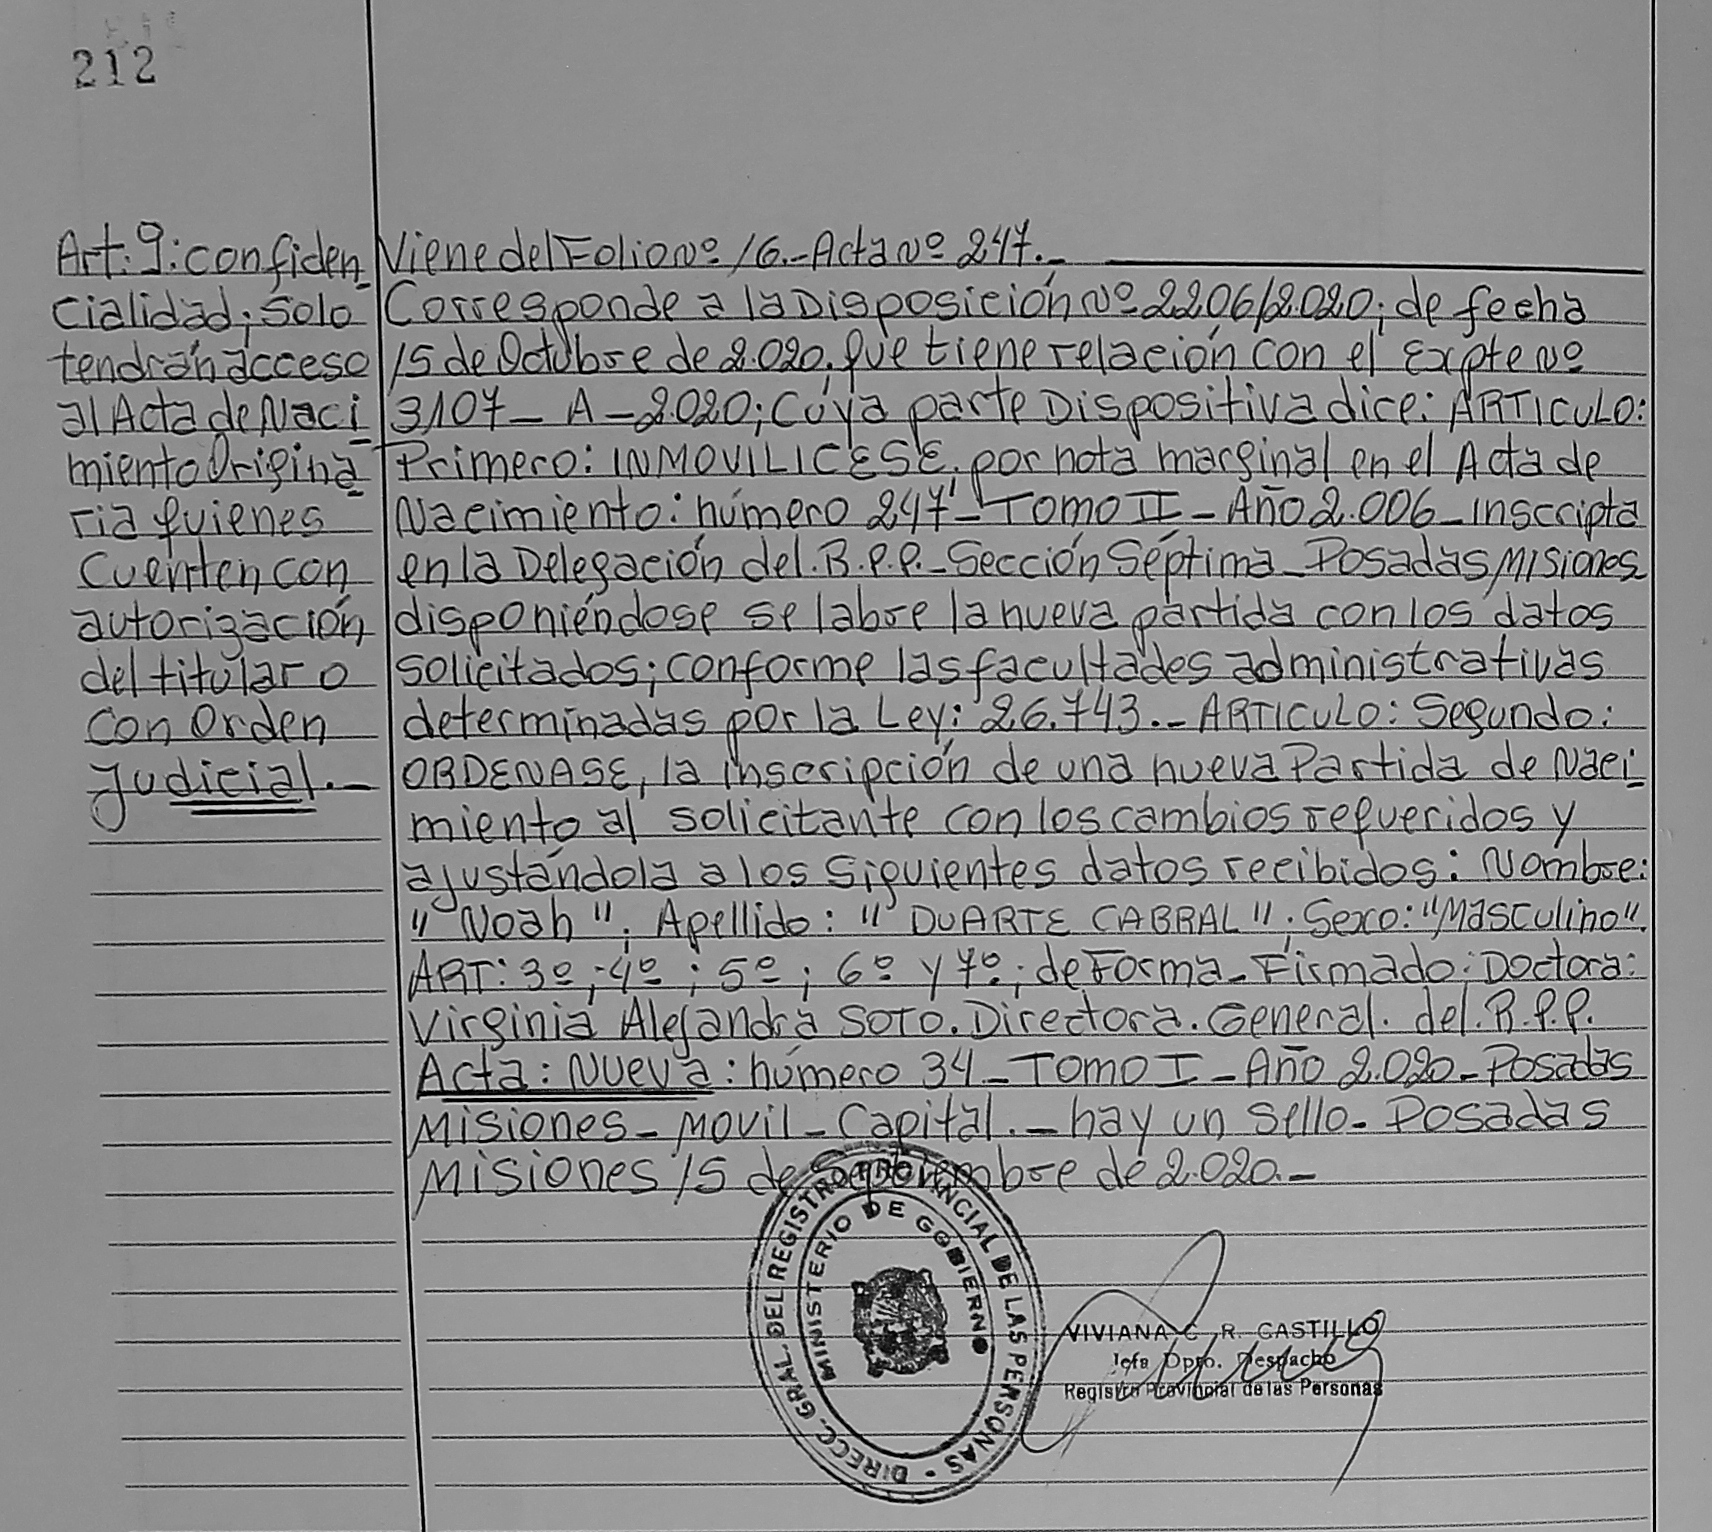 212
Art: 9: confiden_
cialidad; solo
tendrán acceso
al Acta de Naci_
miento Origina_
ria quienes
Cuenten con
autorización
del titular o
Con Orden
Judicial._
Viene del Folio Nº 16.- Acta Nº 247._
Corresponde a la Disposición Nº 2206/2.020; de fecha
15 de Octubre de 2.020. que tiene relación con el Expte Nº
3107_ A_ 2.020; Cuya parte Dispositiva dice: ARTICULO:
Primero: INMOVILICESE. por nota marginal en el Acta de
Nacimiento: número 247_ Tomo II_ Año 2.006_ Inscripta
en la Delegación del. R.P.P._ Sección Séptima_ Posadas Misiones
disponiéndose se labre la nueva partida con los datos
solicitados; conforme las facultades administrativas
determinadas por la Ley: 26.743._ ARTICULO: Segundo:
ORDENASE, la inscripción de una nueva Partida de Naci_
miento al solicitante con los cambios requeridos y
ajustándola a los siguientes datos recibidos: Nombre:
"Noah"; Apellido: "DUARTE CABRAL". Sexo: "Masculino".
ART: 3º; 4º; 5º; 6º y 7º; de Forma_ Firmado: Doctora:
Virginia Alejandra SOTO. Directora. General. del. R.P.P.
Acta: Nueva: número 34_ Tomo I_ Año 2.020_ Posadas
Misiones_ Movil_ Capital._ hay un sello_ Posadas
Misiones 15 de Septiembre de 2.020._
DIRECC. GRAL. DEL REGISTRO PROVINCIAL DE LAS PERSONAS -
MINISTERIO DE GOBIERNO
VIVIANA C. R. CASTILLO
Jefa Dpto. Despacho
Registro Provincial de las Personas